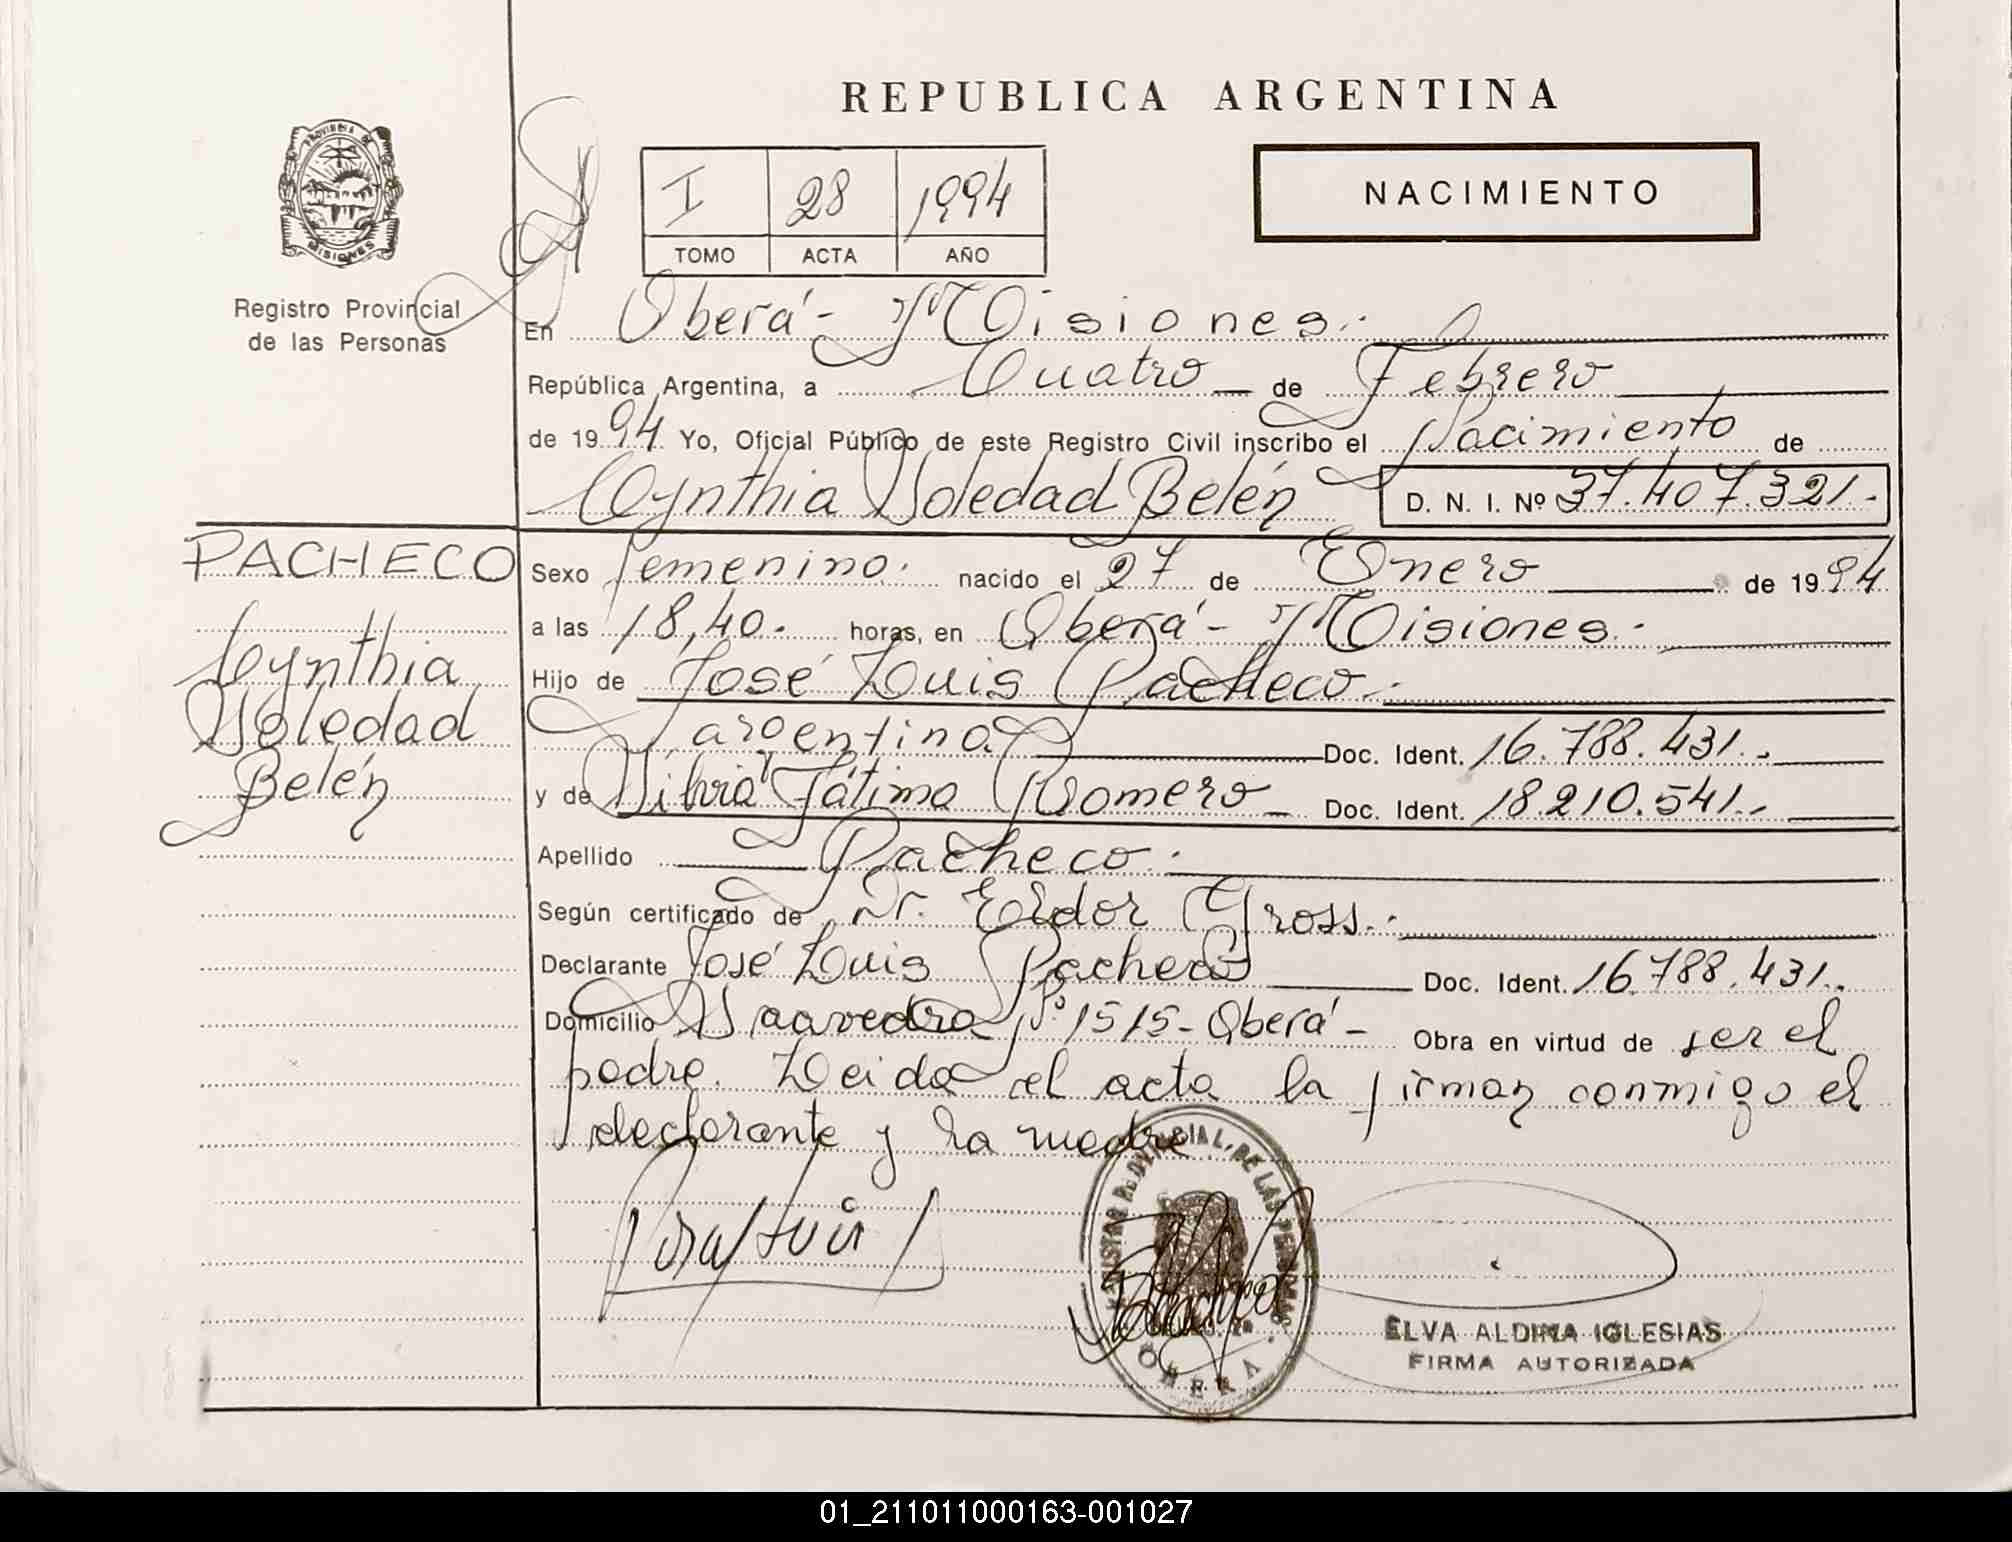 REPUBLICA ARGENTINA
PROVINCIA DE
MISIONES
Registro Provincial
de las Personas
I 28 1994
TOMO ACTA AÑO
NACIMIENTO
En Oberá - Misiones.
República Argentina, a Cuatro de Febrero
de 1994 Yo, Oficial Público de este Registro Civil inscribo el Nacimiento de
Cynthia Soledad Belén D. N. I. Nº 37.407.321.-
PACHECO
Cynthia
Soledad
Belén
Sexo femenino. nacido el 27 de Enero de 1994
a las 18,40. horas, en Oberá - Misiones.
Hijo de José Luis Pacheco.
argentina Doc. Ident. 16.788.431.-
y de Silvia Fátima Romero Doc. Ident. 18.210.541.-
Apellido Pacheco.
Según certificado de Dr. Erdor Gross.
Declarante José Luis Pacheco Doc. Ident. 16.788.431.-
Domicilio Saavedra Nº 1515 - Oberá - Obra en virtud de ser el
padre. Leida el acta la firman conmigo el
declarante y la madre
REGISTRO PROVINCIAL DE LAS PERSONAS
OBERA
ELVA ALDINA IGLESIAS
FIRMA AUTORIZADA
01_211011000163-001027